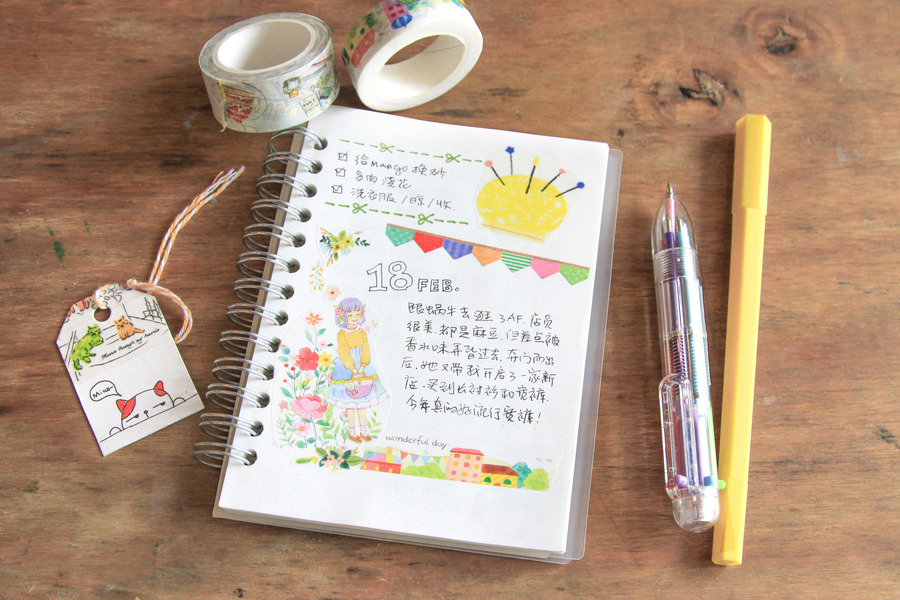 给Mango换砂
多肉浇花
洗衣服/晾/收
18 FEB.
跟蜗牛去逛3AF.店员
很美.都是麻豆,但差点被
香水味弄背过去.夺门而出
后,她又带我开启了一家新
店,买到长衬衫和宽裤.
今年真的好流行宽裤!
wonderful day
Miao